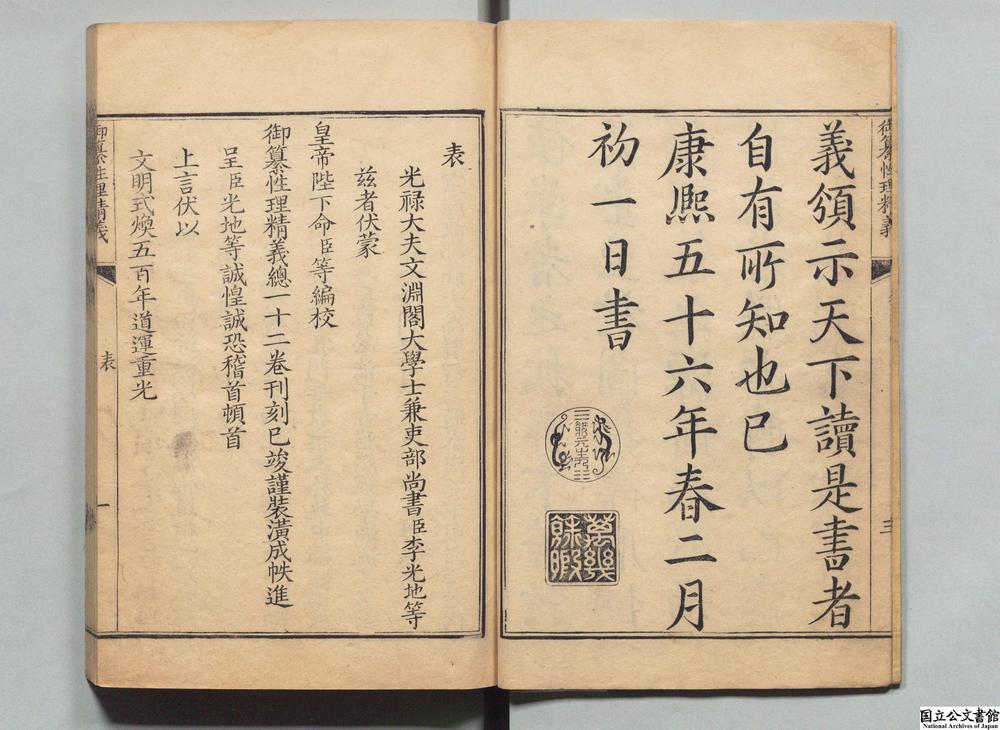 御纂性理精義
三
義頒示天下讀是書者
自有所知也已
康熙五十六年春二月
初一日書
萬幾
餘暇
表
光祿大夫文淵閣大學士兼吏部尚書臣李光地等
兹者伏蒙
皇帝陛下命臣等編校
御纂性理精義總一十二卷刊刻已竣謹裝潢成帙進
呈臣光地等誠惶誠恐稽首頓首
上言伏以
文明式煥五百年道運重光
御纂性理精義
表
一
国立公文書館
National Archives of Japan